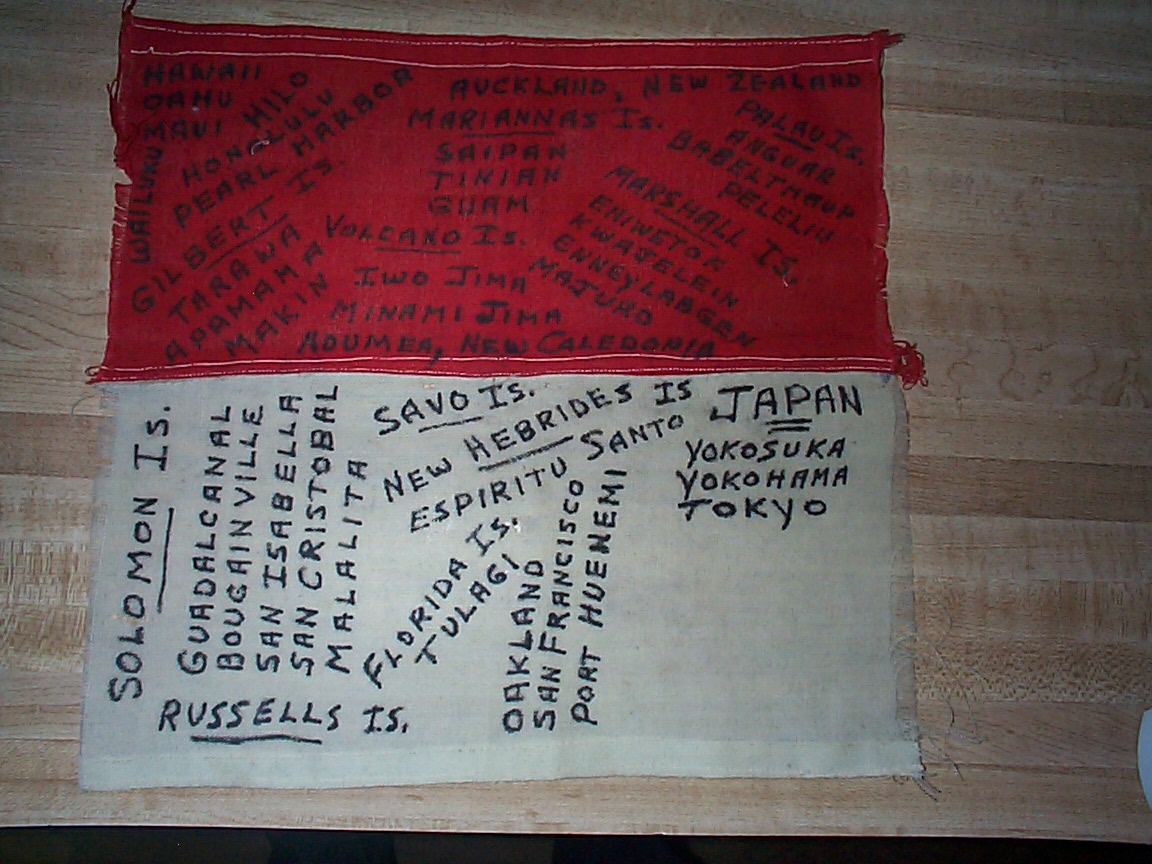 HAWAII
OAHU
MAUI
WAILUKU
HILO
HONOLULU
PEARL HARBOR
GILBERT IS.
TARAWA
APAMAMA
MAKIN
AUCKLAND, NEW ZEALAND
MARIANNAS IS.
SAIPAN
TINIAN
GUAM
VOLCANO IS.
IWO JIMA
MINAMI JIMA
NOUMEA, NEW CALEDONIA
PALAU IS.
ANGUAR
BABELTHAUP
PELELIU
MARSHALL IS.
ENIWETOK
KWAJELEIN
ENNEYLABGEN
MAJURO
SOLOMON IS.
GUADALCANAL
BOUGAINVILLE
SAN ISABELLA
SAN CRISTOBAL
MALALITA
RUSSELLS IS.
SAVO IS.
NEW HEBRIDES IS
ESPIRITU SANTO
FLORIDA IS.
TULAGI
OAKLAND
SAN FRANCISCO
PORT HUENEMI
JAPAN
YOKOSUKA
YOKOHAMA
TOKYO